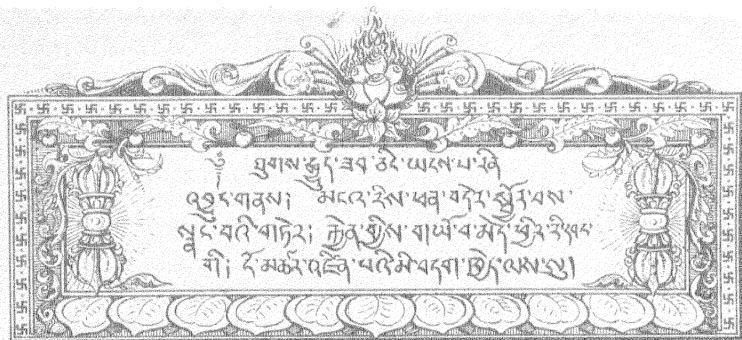 ༈ ཐུགས་རྒྱུད་ཟབ་ཅིང་ཡངས་པ་
འབྱུང་གནས། མངའ་རིས་ཕན་བདེར་སྦྱོར་བས་
སྣང་བའི་གཏེར། རྐྱེན་གྱིས་གཡོ་བ་མེད་ཕྱིར་རི་དབང་
གི། ངོ་མཚར་འཛིན་པའི་མི་བདག་ཁྱེད་ལས་སུ།